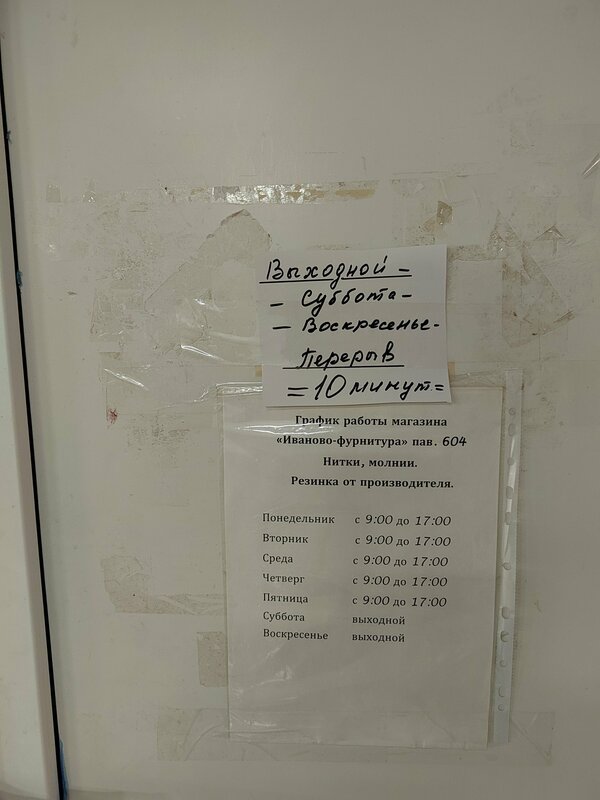 Выходной –
– Суббота –
– Воскресенье –
Перерыв
= 10 минут =
График работы магазина
«Иваново-фурнитура» пав. 604
Нитки, молнии.
Резинка от производителя.
Понедельник с 9:00 до 17:00
Вторник с 9:00 до 17:00
Среда с 9:00 до 17:00
Четверг с 9:00 до 17:00
Пятница с 9:00 до 17:00
Суббота выходной
Воскресенье выходной